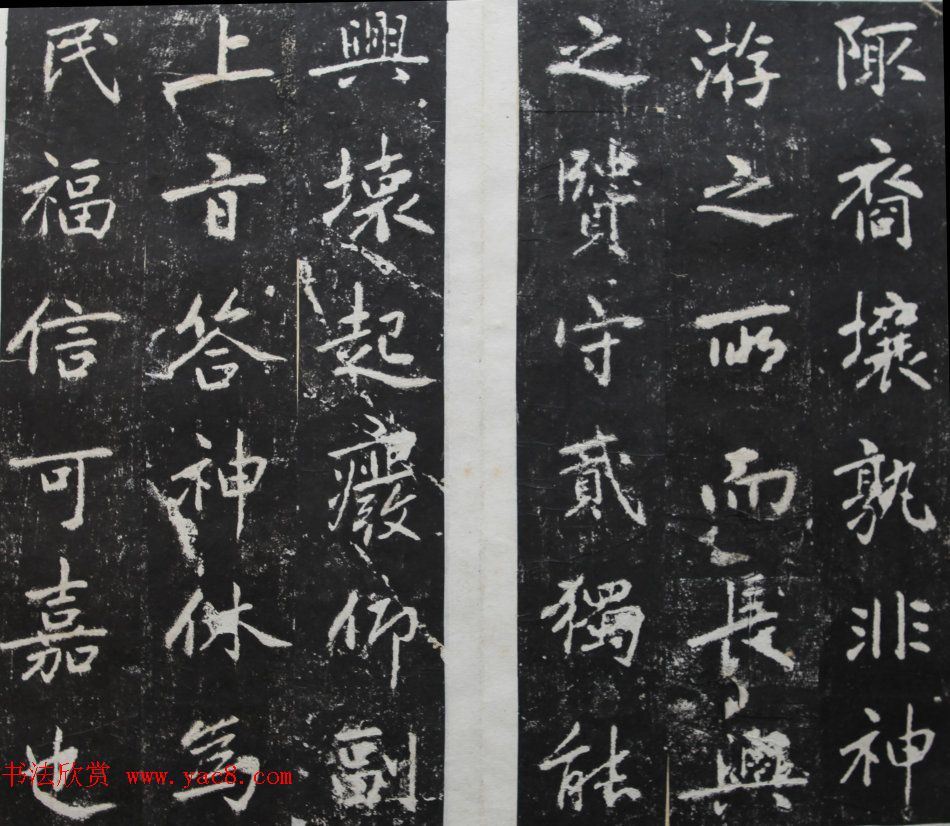 陬裔壤孰非神
游之所而長興
之賢守貳獨能
興壞起癈仰副
上旨答神休為
民福信可嘉也
书法欣赏 www.yac8.com